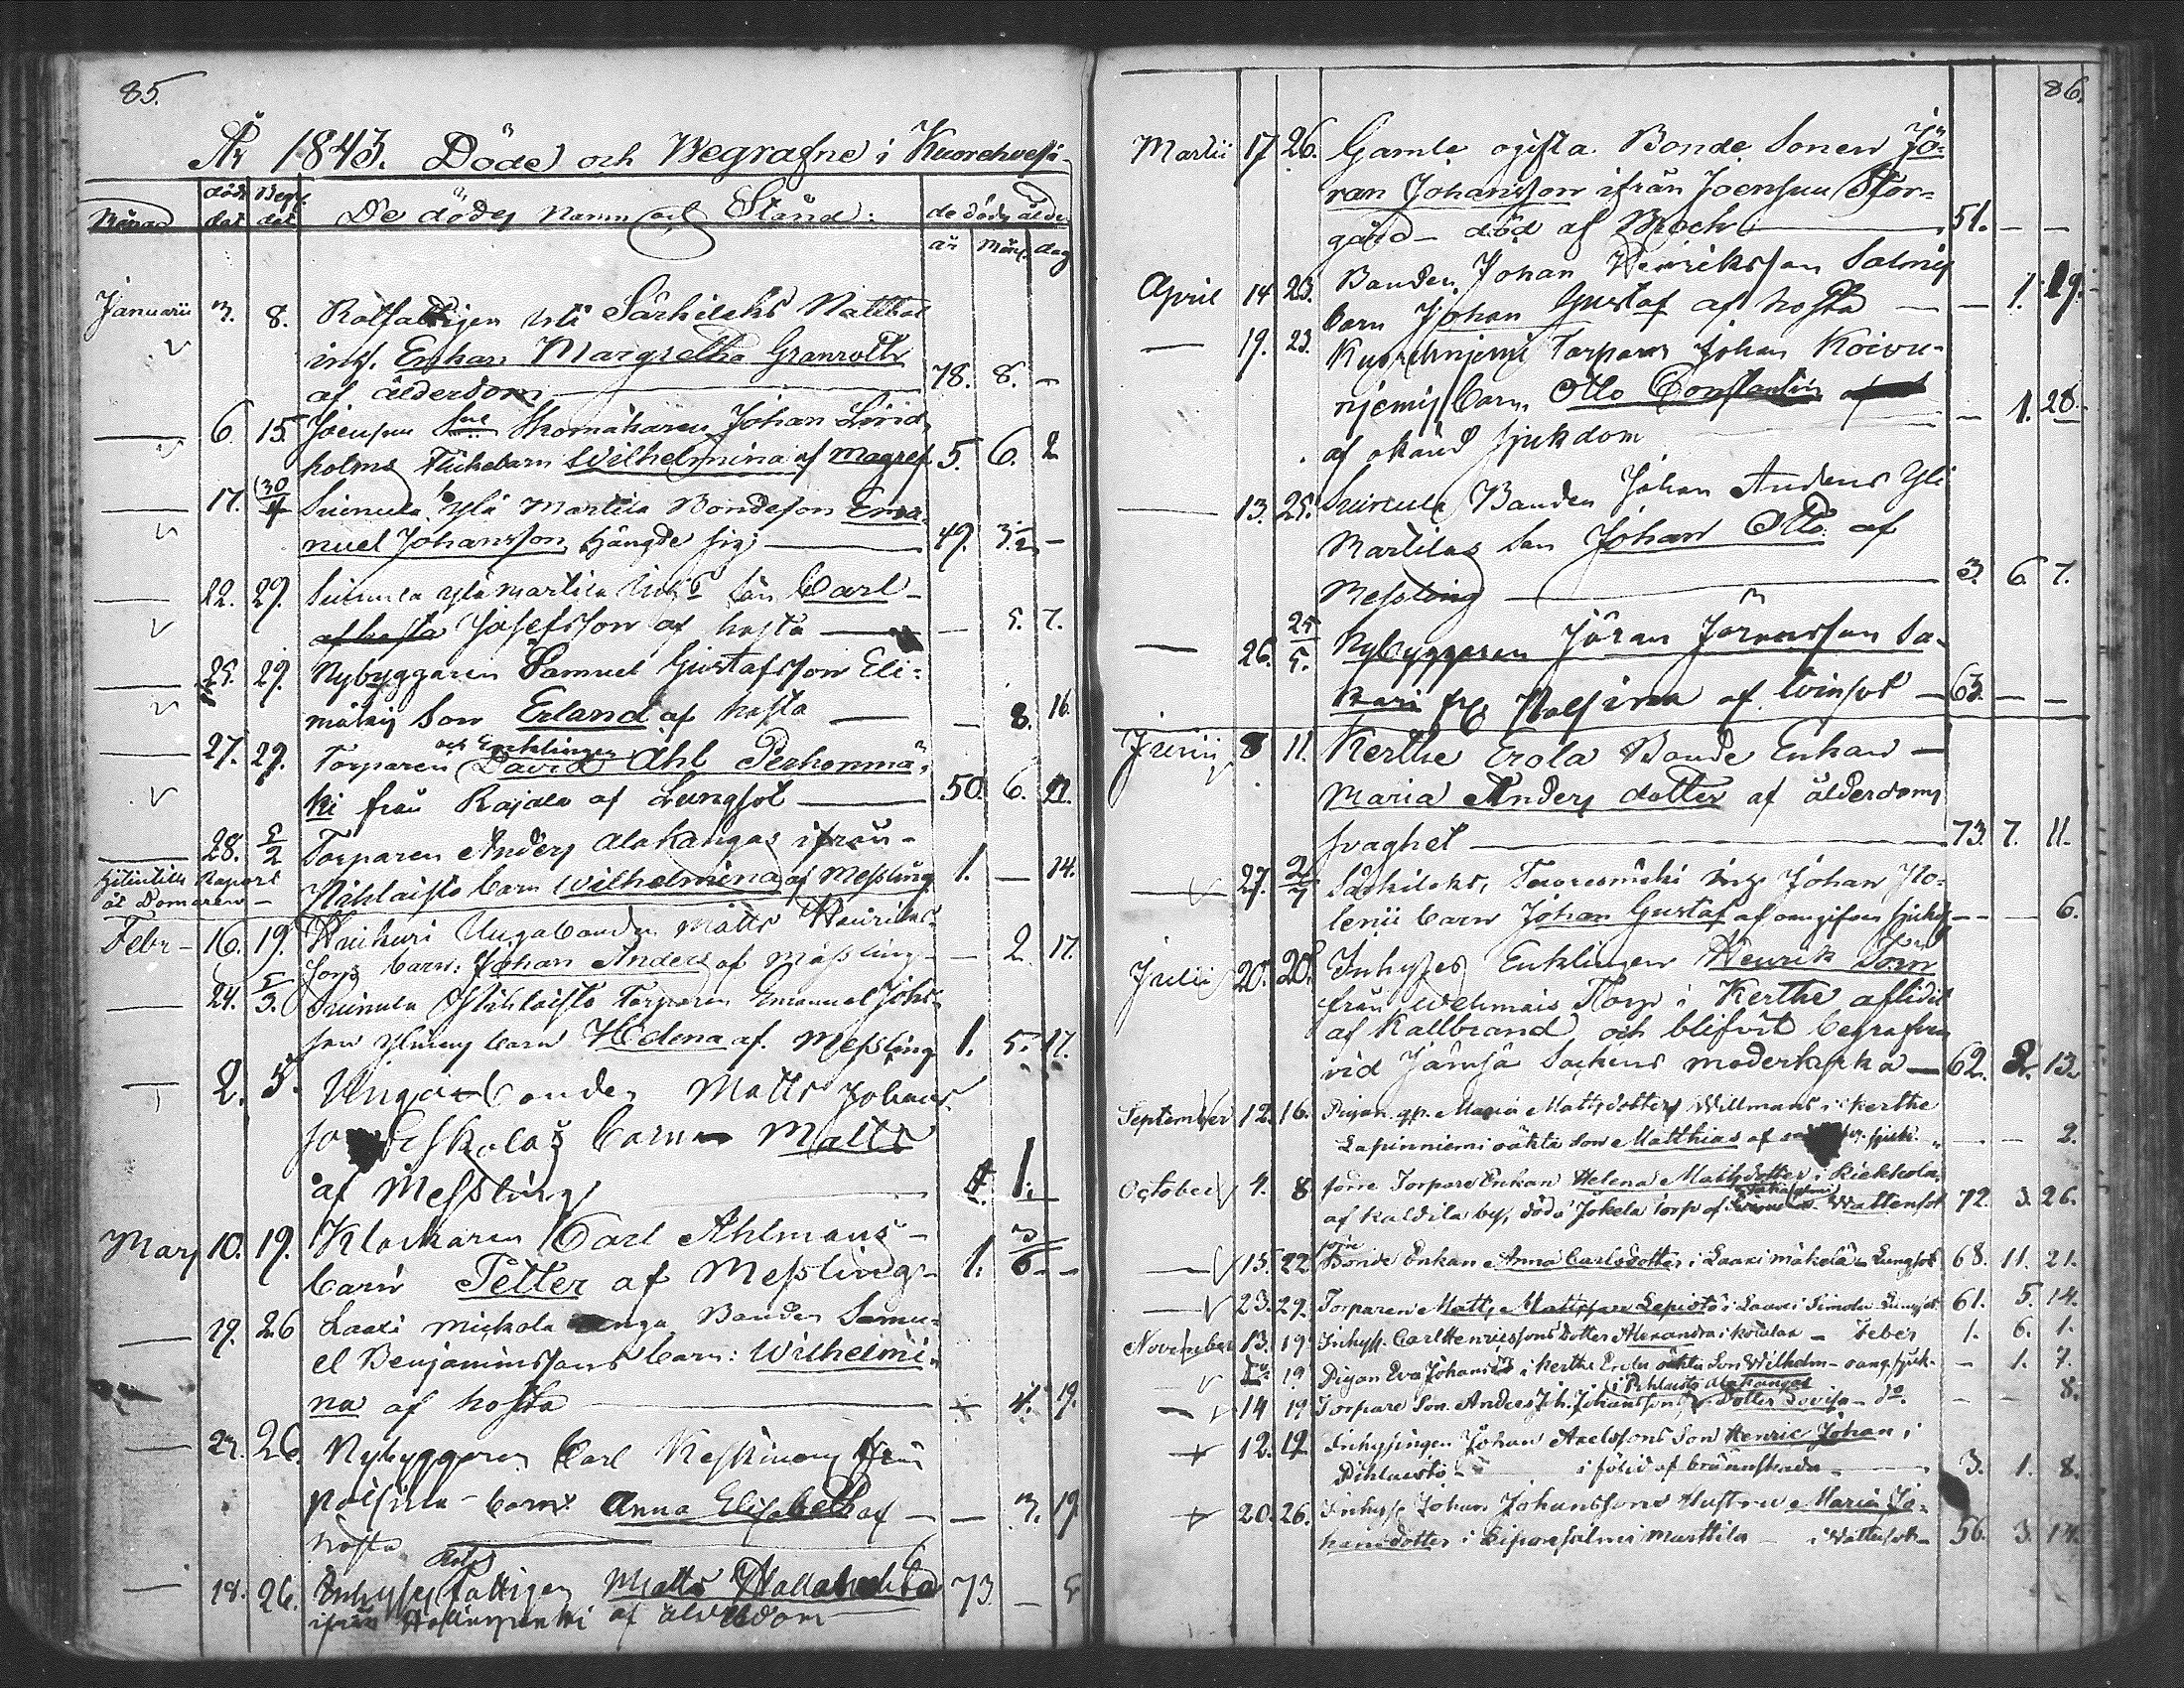 85.
År 1843. Döde och Begrafne i Kuorehvesi
Månad döds dat Begr. dat De dödes namn och Stånd: de dödas ålder
år Mån: dag
Januarii 3. 8. Rotfattigen uti Särkilaks Mattba
inh. Enkan Margretha Granroth
af ålderdom 78. 8. —
— 6. 15. Joensuu Skomakaren Johan Lind
holms Flickebarn Wilhelmina af magref 5. 6. 2
— 17. 30/4 Suinula Ylä Martila Bondeson Ema
nuel Johansson, hängde sig 49. 3. —
— 22. 29. Suinula Ylämartila son Carl
af hosta Josefsson af hosta — 5. 7.
— 25. 29. Nybyggaren Samuel Gustafsson Eli:
mäkis Son Erland af hosta — 8. 16.
— 27. 29. Torparen och Enklingen David Ahl Perhonmä
ki från Rajala af Lungsot 50. 6. 22.
— 28. 5/2 Torparen Anders Alakangas ifrån
Pihlaisto barn Wilhelmina af Messling 1. — 14.
Raport
åt Domaren —
Febr 16. 19. Unga bonden Matts Henriks
sons barn: Johan Anders af Mässling — 2. 17.
— 24. 5/3. Suinula Pihlaisto Torparen Emanuel Johs
son barn Helena af Messling 1. 5. 17.
— 2. 5. Unga bonden Matts Johans
so Eskolas barn Matts
af Messling 1. —
Mars 10. 19. Klockaren Carl Ahlmans
barn Petter af Messling 1. 6 —
— 19. 26 Laaxi Mickola unga Bonden Samu
el Benjaminssons barn: Wilhelmi
na af hosta 4. 19.
— 24. 26. Nybyggaren Carl Keskinens från
Poisina barn Anna Elisabeth af — 3. 19.
hosta
— 18. 26. Inhyses Rot fattigen Matts
ifrån af ålderdom 73. —
86.
Martii 17 26. Gamle ogifta Bonde Sonen Jö
ran Johansson ifrån Joensuu Stor
gård — död af Bröck 51. — —
April 14 23. Bonden Johan Henriksson Salmis
barn Johan Gustaf af hosta — 1. 19.
— 19. 23. Kuorehnjemi Torparen Johan Koivu
njemis barn Otto Constantin
af okänd sjukdom — 1. 28.
— 13. 25. Suinula Bonden Johan Anders Yli
Martilas Son Johan Otto af
Messling 3. 6. 7.
— 26. 25/5. Nybyggaren Jöran Jöransson Sa
kari från Poisina af tvinsot 63. — —
Junii 8 11. Kerthe Erola Bonde Enkan
Maria Anders dotter af ålderdoms
svaghet 73. 7. 11.
— 27. 2/7 Särkilaks, Johan Ylo
lenii barn Johan Gustaf af oangifven sjukd — — 6.
Julii 20. 20. Inhyses Enklingen Henrik Törn
från Torp i Kerthe aflidit
af Kallbrand och blifvit begrafven
vid Jämsä Sockens moderkyrka 62. 2. 13.
September 12. 16. Pigan Maria Mattsdotter Willmans i Kerthe
Lapinniemi oäkta son Matthias af sjukd. — — 2.
October 4. 8 förre Torpare Enkan Helena Mattsdotter i Kiekkola
af Kaldila by, död i Jokela torp af Wattensot 72. 3. 26.
— 15. 22. förre Bonde Enkan Anna Carlsdotter i Laaxi Mäkelä Lungsot 68. 11. 21.
— 23. 29. Torparen Matts Mattsson Lepistö i Laaxi Simola Lungsot 61. 5. 14.
November 13. 19. Inhys. Carl Henricssons dotter Alexandra i — Feber 1. 6. 1.
— 19 Pigan Eva Johansd. i Kerthe Erola oäkta Son Wilhelm — oang. sjuk. — 1. 7.
— 14 19 Torpare Son Anders Joh. Johanssons i Pihlaisto Alakangas Dotter Lovisa — do. — — 8.
— 12. 19. Inhysingen Johan Axelssons Son Henric Johan i
Pihlaisto — i följd af brännskada 3. 1. 8.
— 20. 26. Inhys. Johan Johanssons Hustru Maria Jo
hansdotter i Martila — i Wattusot 56. 3. 14.